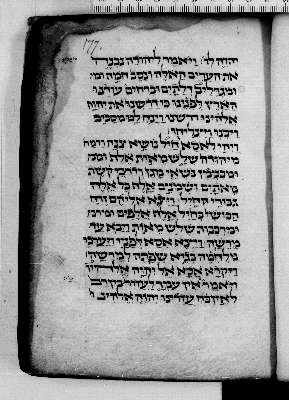 177
יהוה לו׃ ויאמר ליהודה נבנה
את הערים האלה ונסב חומה ומ
ומגדלים דלתים ובריחים עודנו
הארץ לפנינו כי דרשנו את יהוה
אלהינו דרשנו וינח לנו מסביב
ויבנו ויצליחו׃
ויהי לאסא חיל נושא צנה ורמח
מיהודה שלש מאות אלף ומב
ומבנימין נשאי מגן ודרכי קשת
מאתים ושמונים אלף כל אלה
גבורי חיל׃ ויצא אליהם זרח
הכושי בחיל אלף אלפים ומר
ומרכבות שלש מאות ויבא עד
מרשה׃ ויצא אסא לפניו ויערכו
מלחמה בגיא צפתה למרשה׃
ויקרא אסא אל יהוה אלהיו
ויאמר אין עמך לעזור בין רב
לאין כח עזרנו יהוה אלהינו כי